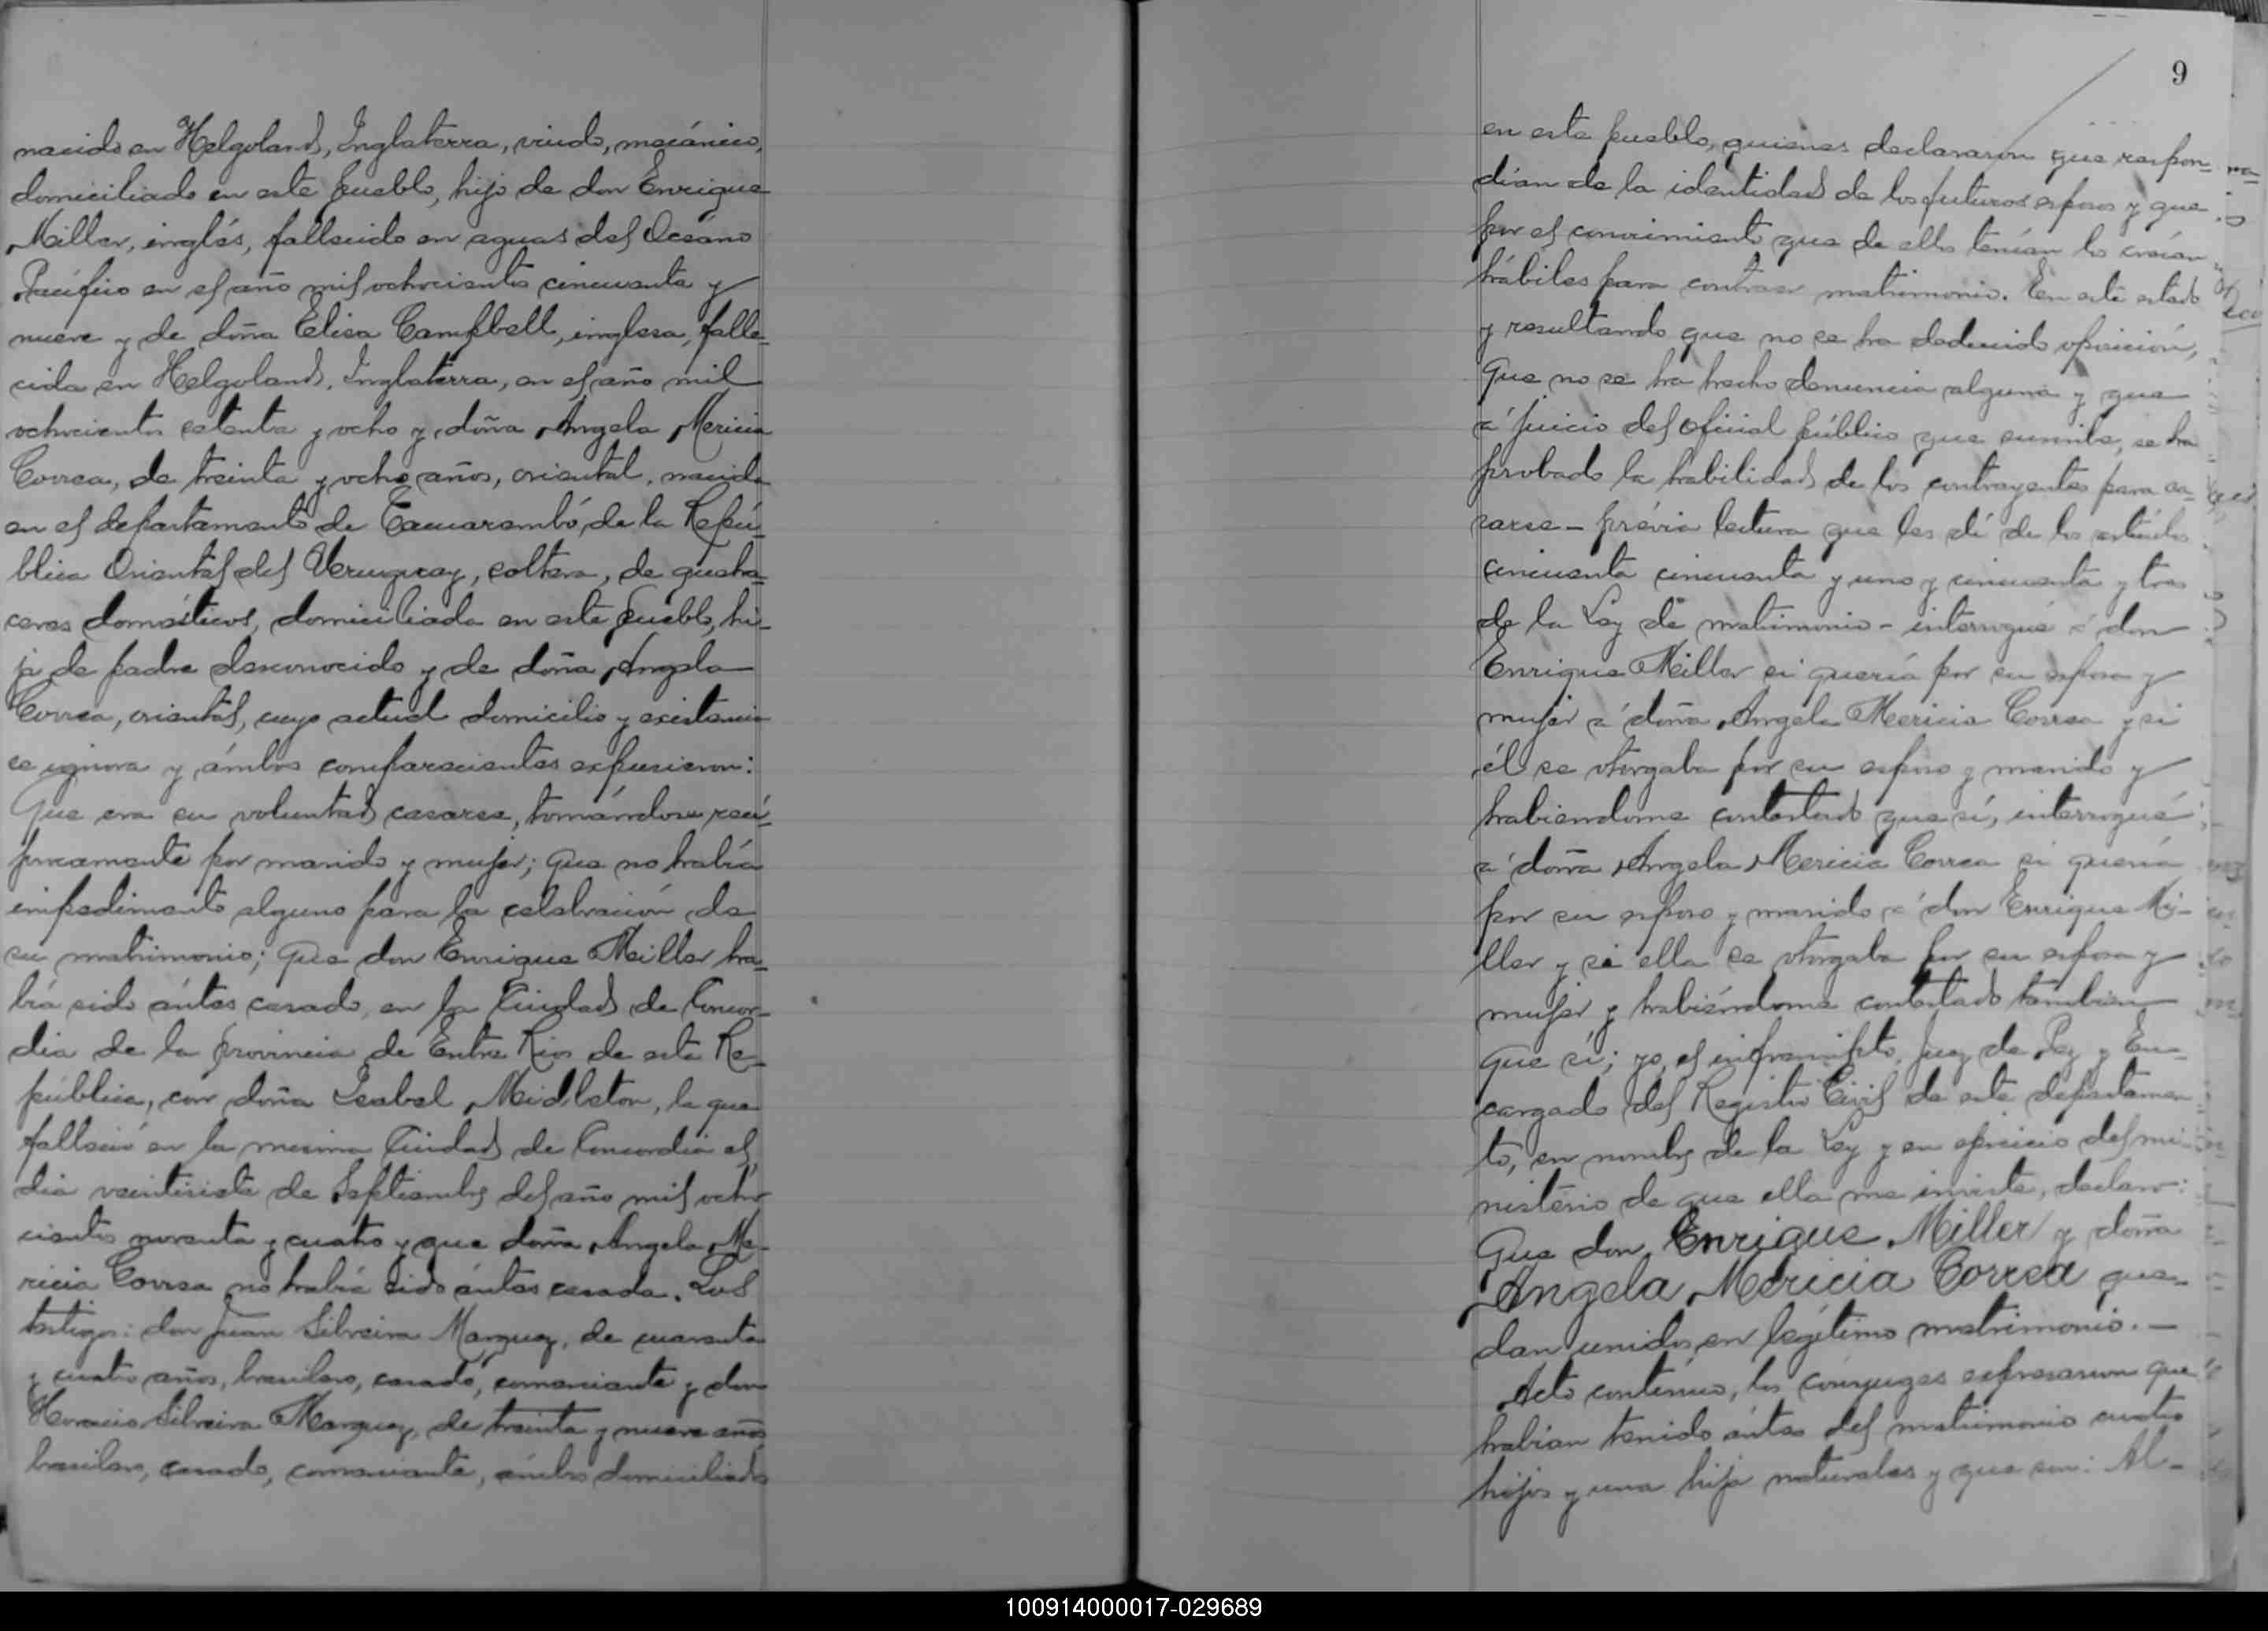 nacido en Helgoland, Inglaterra, viudo, mecánico,
domiciliado en este pueblo, hijo de don Enrique
Miller, inglés, fallecido en aguas del Océano
Pacífico en el año mil ochocientos cincuenta y
nueve y de doña Elisa Campbell, inglesa, falle-
cida en Helgoland, Inglaterra, en el año mil
ochocientos setenta y ocho y doña Angela Mericia
Correa, de treinta y ocho años, oriental, nacida
en el departamento de Tacuarembó, de la Repú-
blica Oriental del Uruguay, soltera, de queha-
ceres domésticos, domiciliada en este pueblo, hi-
ja de padre desconocido y de doña Angela
Correa, oriental, cuyo actual domicilio y existencia
se ignora y ámbos comparecientes expusieron:
Que era su voluntad casarse, tomándose recí-
procamente por marido y mujer; que no había
impedimento alguno para la celebración de
su matrimonio; que don Enrique Miller ha-
bía sido ántes casado, en la Ciudad de Concor-
dia de la provincia de Entre Rios de esta Re-
pública, con doña Isabel Midleton, la que
falleció en la misma Ciudad de Concordia el
dia veintisiete de Septiembre del año mil ocho-
cientos noventa y cuatro y que doña Angela Me-
ricia Correa no había sido ántes casada. Los
testigos: don Juan Silveira Marquez, de cuarenta
y cuatro años, brasilero, casado, comerciante y don
Horacio Silveira Marquez, de treinta y nueve años
brasilero, casado, comerciante, ámbos domiciliados
9
en este pueblo, quienes declararon que respon-
dían de la identidad de los futuros esposos y que
por el conocimiento que de ellos tenían los creían
hábiles para contraer matrimonio. En este estado
y resultando que no se ha deducido oposición,
Que no se ha hecho denuncia alguna y que
á juicio del oficial público que suscribe, se ha
probado la habilidad de los contrayentes para ca-
sarse - prévia lectura que les dí de los artículos
cincuenta cincuenta y uno y cincuenta y tres
de la Ley de matrimonio - interrogué á don
Enrique Miller si quería por su esposa y
mujer á doña Angela Mericia Correa y si
él se otorgaba por su esposo y marido y
habiendome contestado que sí, interrogué
á doña Angela Mericia Correa si quería
por su esposo y marido á don Enrique Mi-
ller y si ella se otorgaba por su esposa y
mujer y habiéndome contestado tambien
que sí; yo, el infrascripto, Juez de Paz y En-
cargado del Registro Civil de este departamen-
to, en nombre de la Ley y en ejercicio del mi-
nistério de que ella me inviste, declaro:
Que don Enrique Miller y doña
Angela Mericia Correa que-
dan unidos en legítimo matrimonio. —
Acto contínuo, los cónyuges expresaron que
habían tenido ántes del matrimonio cuatro
hijos y una hija naturales y que son: Al-
100914000017-029689